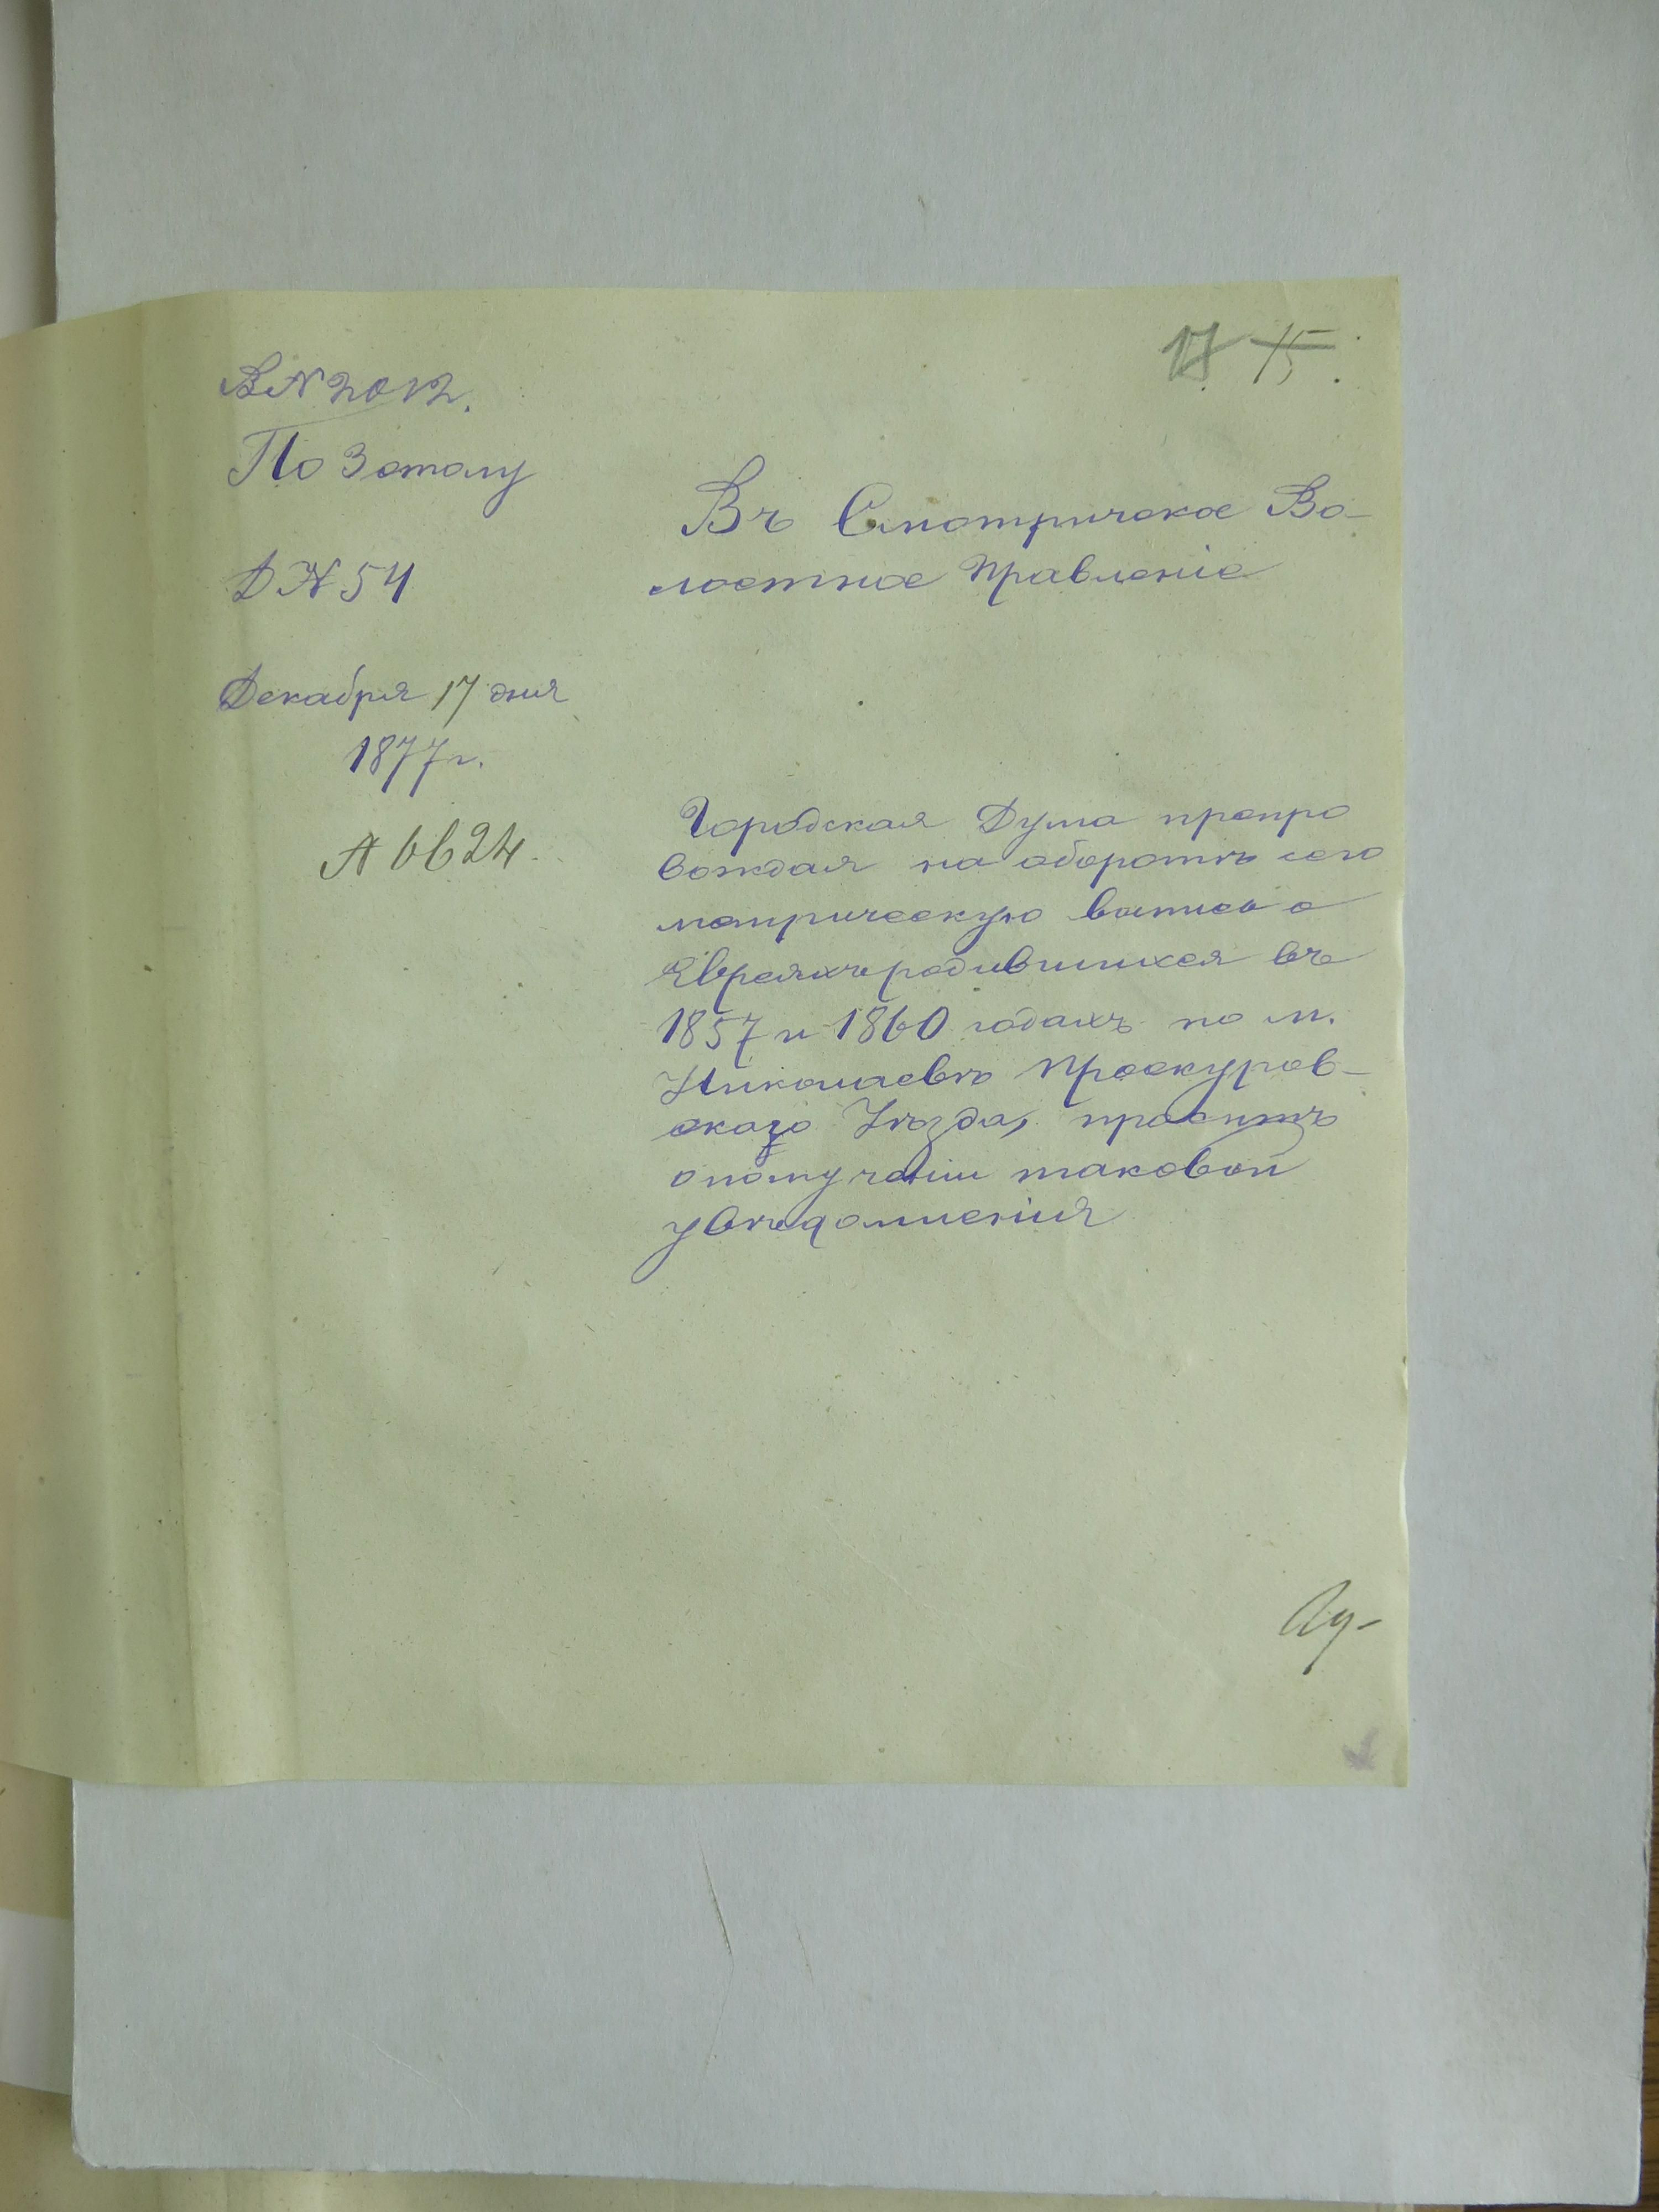 17 15
В № 2012.
По 3 столу
Д № 54
Декабря 17 дня
1877 г.
№ 6624
Въ Смотричское Во-
лостное Правленіе
Городская Дума препро
вождая на оборотѣ сего
метрическую выпись о
Евреяхъ родившихся въ
1857 и 1860 годахъ по м.
Николаевѣ Проскуров-
скаго Уѣзда, проситъ
о получаніи таковой
увѣдомленія